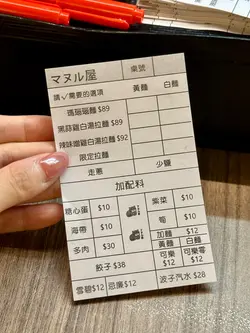 マヌル屋 桌號
請✓需要的選項 黃麵 白麵
瑪瑙貓麵 $89
黑蒜雞白湯拉麵 $89
辣味噌雞白湯拉麵 $92
限定拉麵
走蔥 少鹽
加配料
糖心蛋 $10 紫菜 $10
海帶 $10 筍 $10
多肉 $30 加麵 $12
黃麵 白麵
餃子 $38 可樂 $12 可樂零 $12
雪碧 $12 忌廉 $12 波子汽水 $28